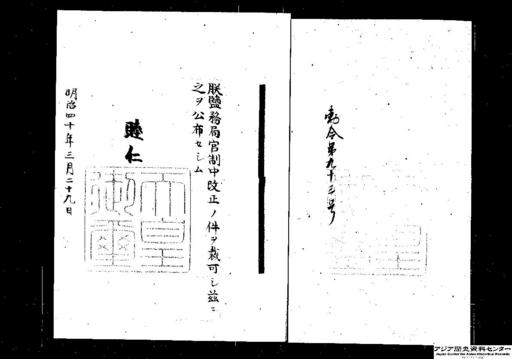 勅令第九十三号
朕鹽務局官制中改正ノ件ヲ裁可シ茲ニ
之ヲ公布セシム
睦仁
天皇御璽
明治四十年三月二十九日
アジア歴史資料センター
Japan Center for Asian Historical Records